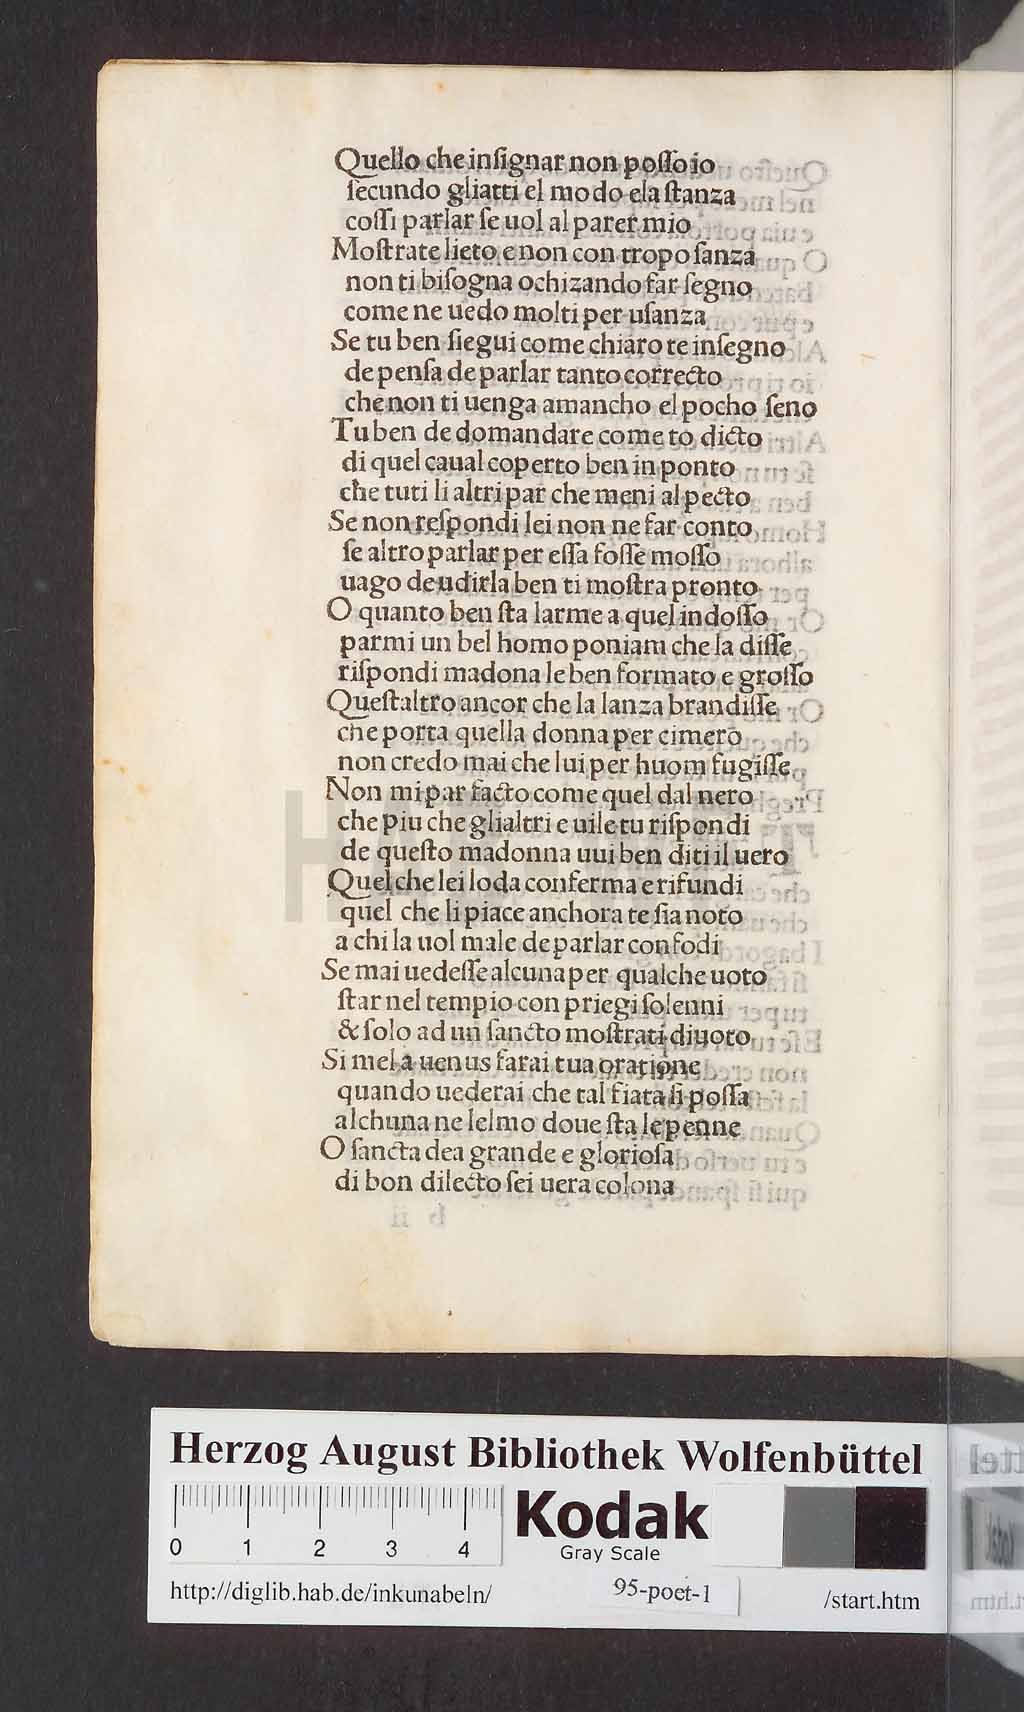 Quello che inſignar non poſſo io
ſecundo gliatti el modo ela ſtanza
coſſi parlar ſe uol al parer mio
Moſtrate lieto e non con tropo ſanza
non ti biſogna ochizando far ſegno
come ne uedo molti per uſanza
Se tu ben ſiegui come chiaro te inſegno
de penſa de parlar tanto correcto
che non ti uenga amancho el pocho ſeno
Tu ben de domandare come to dicto
di quel caual coperto ben in ponto
che tuti li altri par che meni al pecto
Se non reſpondi lei non ne far conto
ſe altro parlar per eſſa foſſe moſſo
uago de udirla ben ti moſtra pronto
O quanto ben ſta larme a quel indoſſo
parmi un bel homo poniam che la diſſe
riſpondi madona le ben formato e groſſo
Queſtaltro ancor che la lanza brandiſſe
che porta quella donna per cimero
non credo mai che lui per huom fugiſſe
Non mi par facto come quel dal nero
che piu che glialtri e uile tu riſpondi
de queſto madonna uui ben diti il uero
Quel che lei loda conferma e rifundi
quel che li piace anchora te ſia noto
a chi la uol male de parlar confodi
Se mai uedeſſe alcuna per qualche uoto
ſtar nel tempio con priegi ſolenni
& ſolo ad un ſancto moſtrati diuoto
Si mel a uenus farai tua oratione
quando uederai che tal fiata ſi poſſa
alchuna ne lelmo doue ſta le penne
O ſancta dea grande e glorioſa
di bon dilecto ſei uera colona
Herzog August Bibliothek Wolfenbüttel
0 1 2 3 4
Kodak
Gray Scale
http://diglib.hab.de/inkunabeln/
95-poet-1
/start.htm